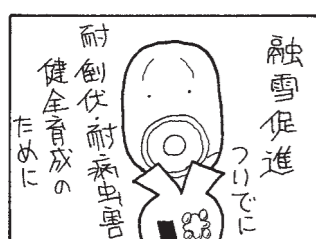 融雪促進
ついでに
耐倒伏・耐病虫害
健全育成の
ために